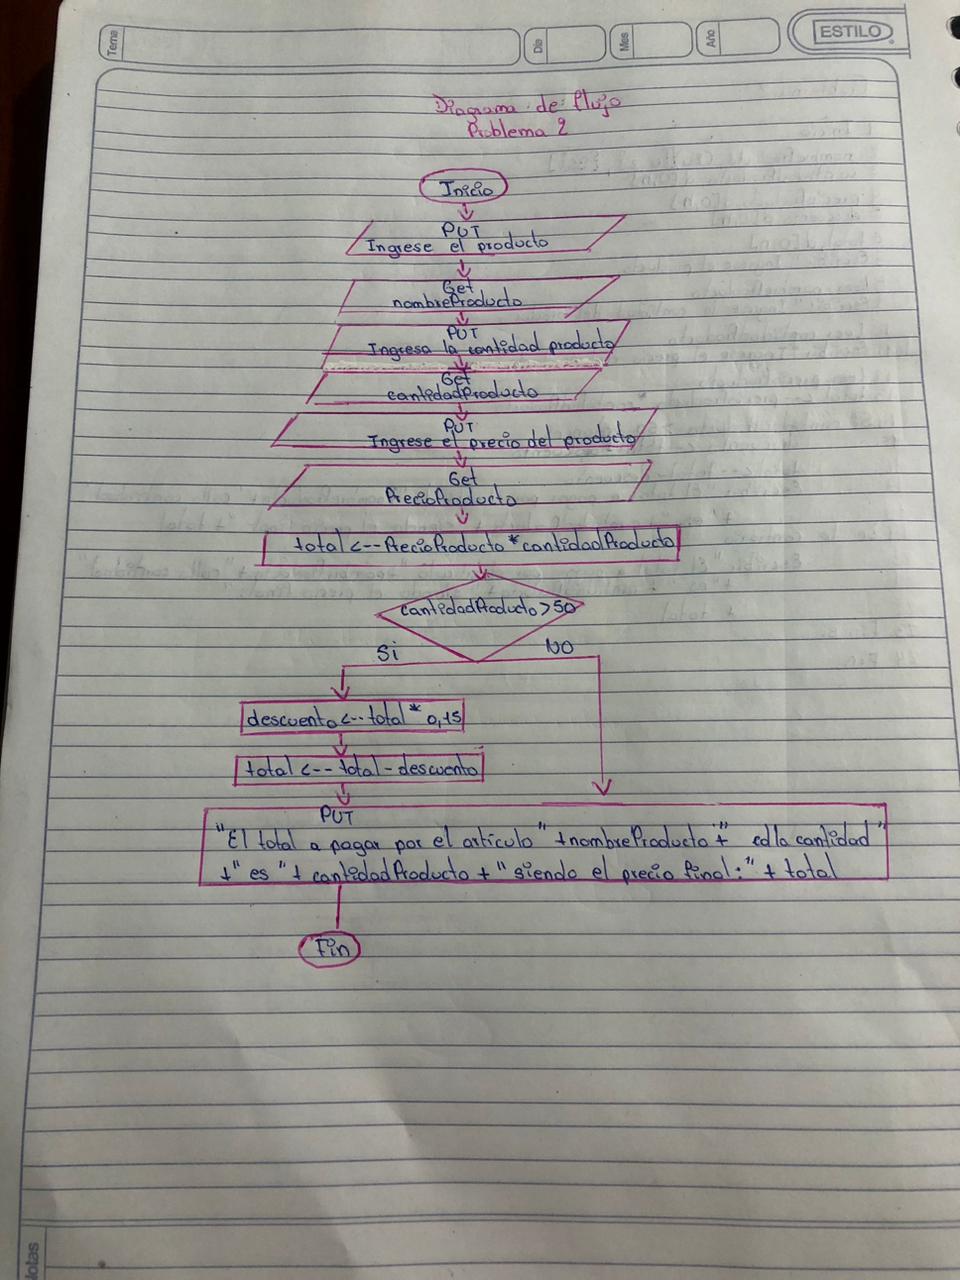 Tema
Día
Mes
Año
ESTILO
Diagrama de flujo
Problema 2
Inicio
PUT
Ingrese el producto
Get
nombreProducto
PUT
Ingresa la cantidad producto
Get
cantidadProducto
PUT
Ingrese el precio del producto
Get
PrecioProducto
total <-- PrecioProducto * cantidadProducto
cantidadProducto > 50
Si NO
descuento <-- total * 0,15
total <-- total - descuento
PUT
"El total a pagar por el artículo" + nombreProducto + " la cantidad"
+" es "+ cantidadProducto + "siendo el precio final:" + total
Fin
Notas